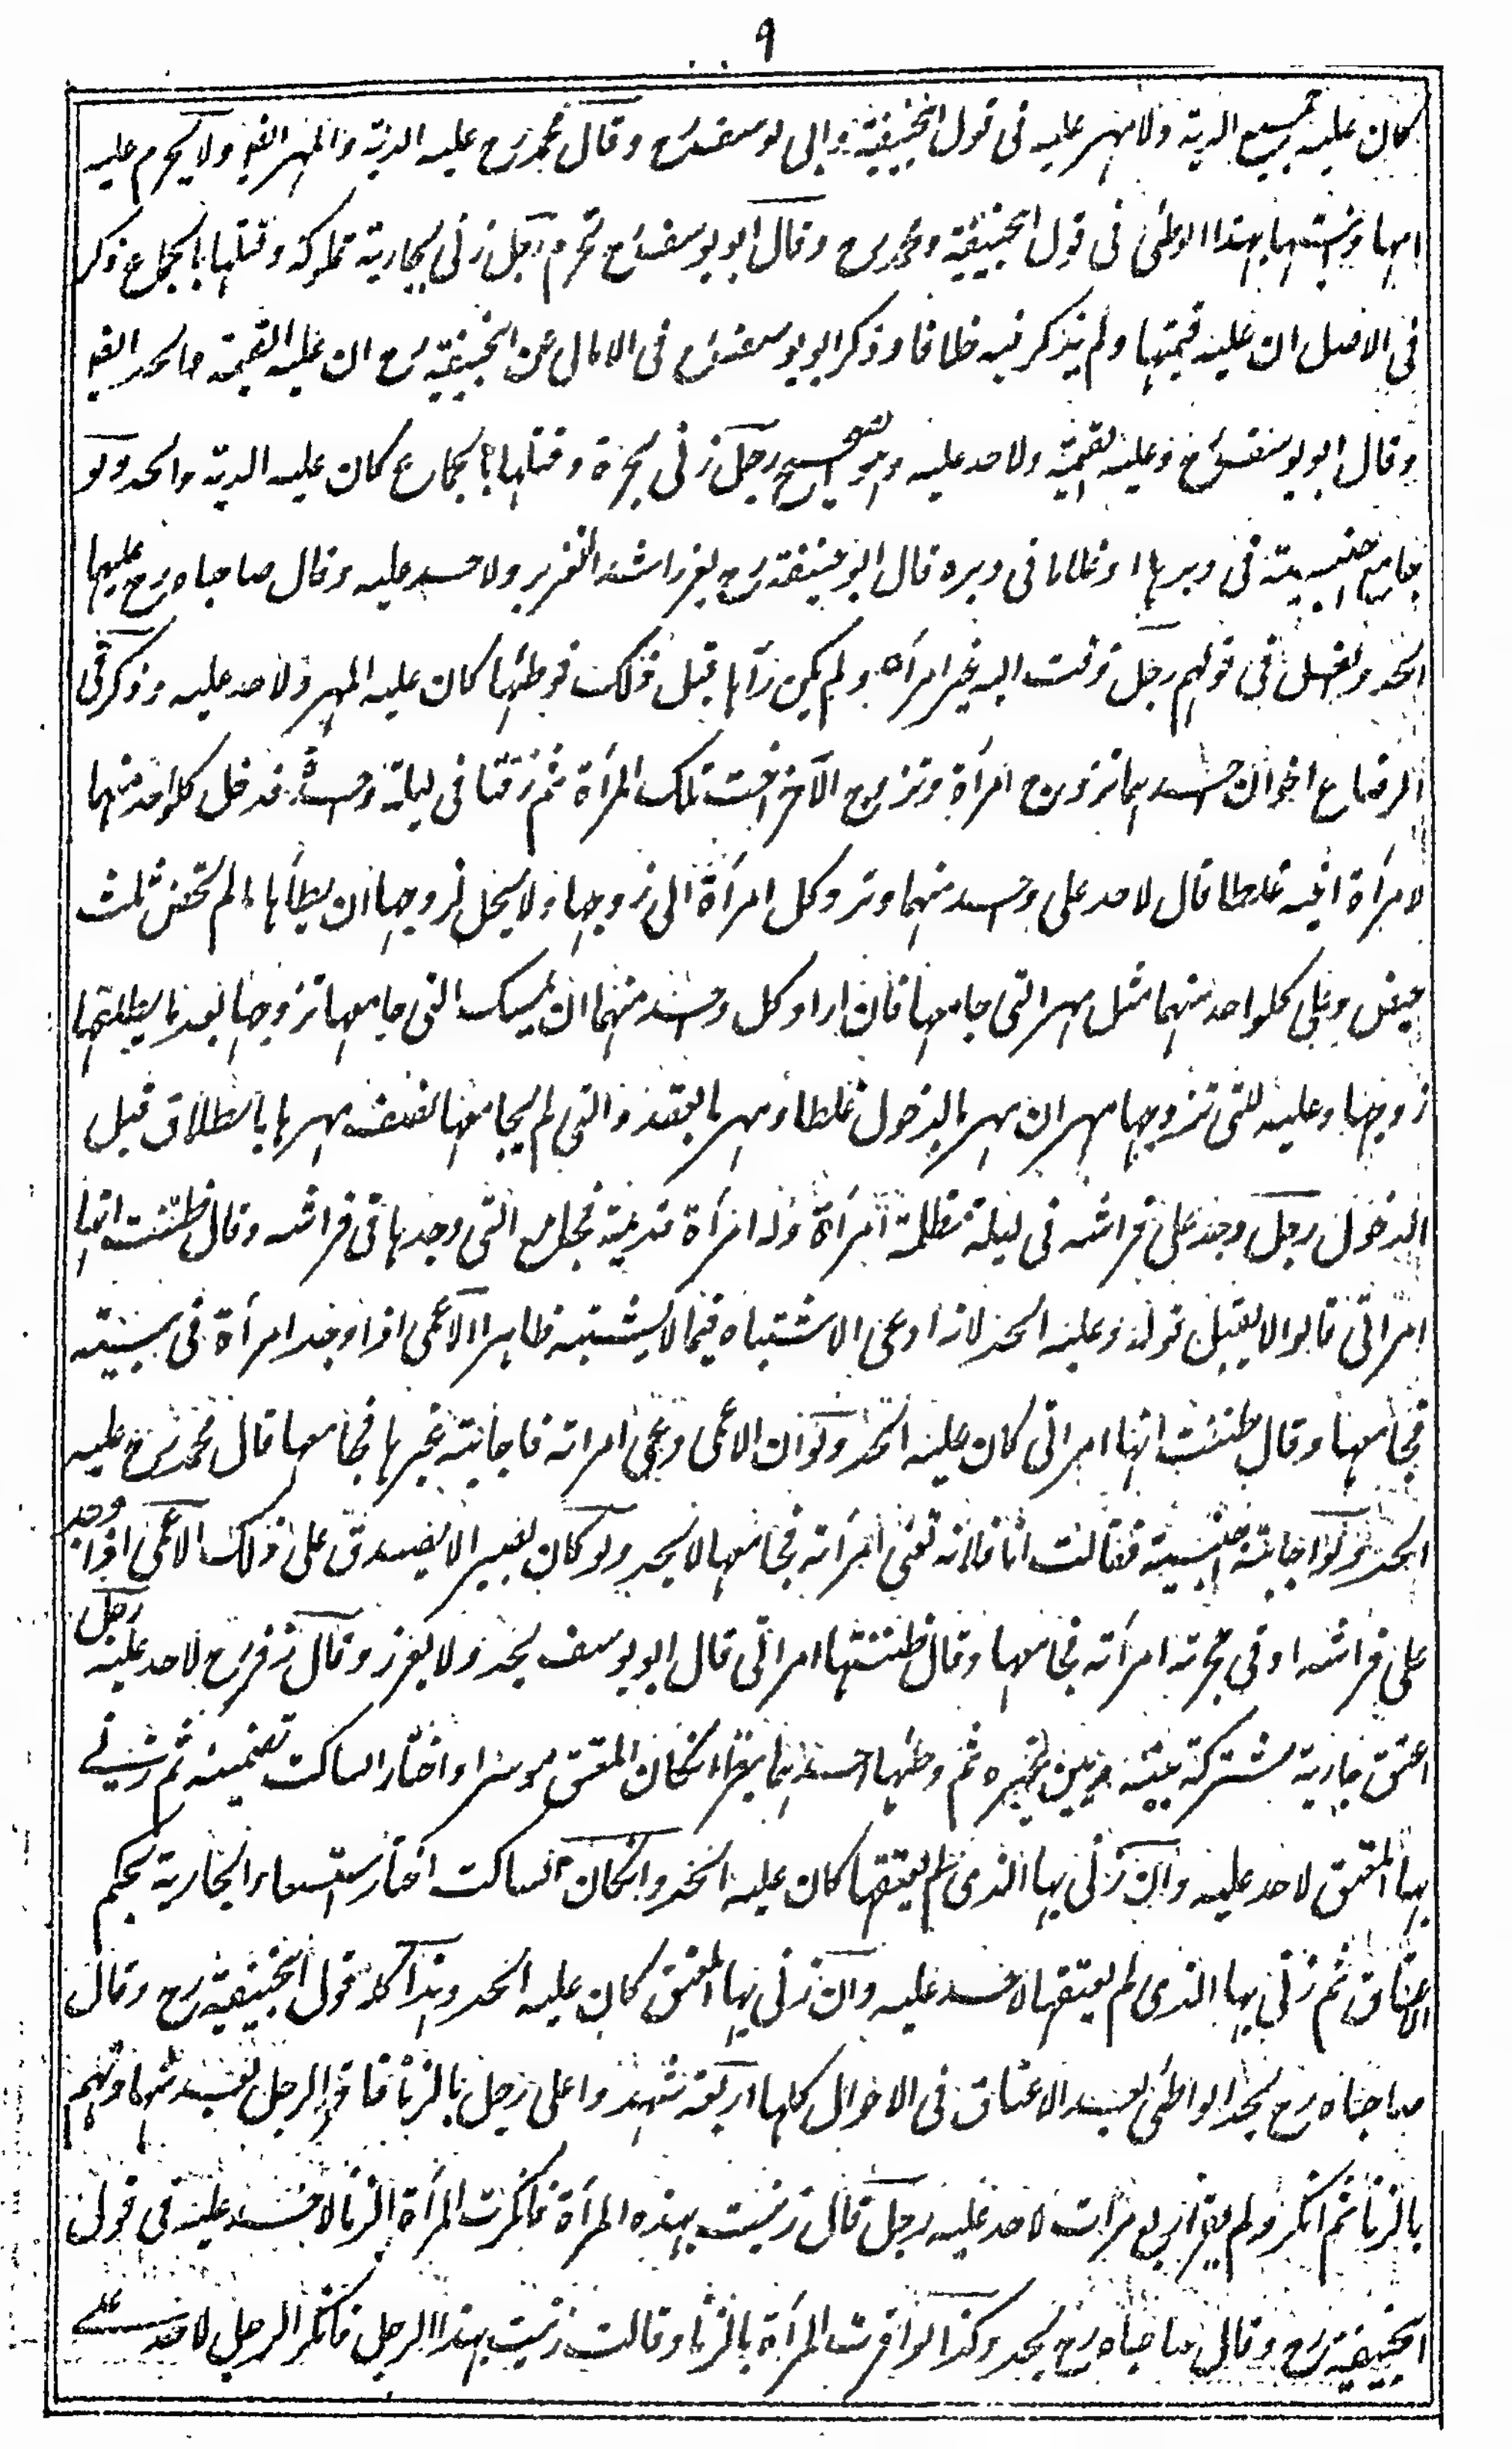 ٩
كان عليه جميع الدية ولا مهر عليه فى قول ابيحنيفة وابى يوسف رح وقال محمد رح عليه الدية والمهر ايضا ولا يحرم عليه
امها وبنتها بهذا الوطئ فى قول ابيحنيفة ومحمد رح وقال ابو يوسف رح تحرم رجل زنى بجارية مملوكة وقتلها بالجماع ذكر
فى الاصل ان عليه قيمتها ولم يذكر فيه خلافا وذكر ابو يوسف رح فى الامالى عن ابيحنيفة رح ان عليه القيمة والحد ايضا
وقال ابو يوسف رح وعليه القيمة ولا حد عليه وهو الصحيح رجل زنى بحرة وقتلها بالجماع كان عليه الدية والحد ولو
جامع اجنبية فى دبرها او غلاما فى دبره قال ابو حنيفة رح يعزر اشد التعزير ولا حد عليه وقال صاحباه رح عليهما
الحد والغسل فى قولهم رجل زفت اليه غير امرأته ولم يكن رآها قبل ذلك فوطئها كان عليه المهر ولا حد عليه وذكر فى
الرضاع اخوان احدهما تزوج امرأة وتزوج الآخر اخت تلك المرأة ثم زفتا فى ليلة واحدة فدخل كلواحد منهما
لامرأة اخيه غلطا قال لا حد على واحد منهما وترد كل امرأة الى زوجها ولا يحل لزوجها ان يطأها مالم تحض ثلث
حيض وعلى كلواحد منهما مثل مهر التى جامعها فان اراد كل واحد منهما ان يمسك التى جامعها تزوجها بعد ما يطلقها
زوجها وعليه للتى تزوجها مهران مهر بالدخول غلطا ومهر بالعقد والتى لم يجامعها نصف مهرها بالطلاق قبل
الدخول رجل وجد على فراشه فى ليلة مظلمة امرأة وله امرأة قديمة فجامع التى وجدها فى فراشه وقال ظننت انها
امراتى قالوا لا يقبل قوله وعليه الحد لانه ادعى الاشتباه فيما لا يشتبه ظاهرا الاعمى اذا وجد امرأة فى بيته
فجامعها وقال ظننت انها امراتى كان عليه الحد ولو ان الاعمى دعى امراته فاجابته غيرها فجامعها قال محمد رح عليه
الحد ولو اجابته اجنبية فقالت انا فلانة تعنى امرأته فجامعها لا يحد ولو كان بصيرا لا يصدق على ذلك الاعمى اذا وجد
على فراشه او فى حجرته امرأته فجامعها وقال ظننتها امراتى قال ابو يوسف يحد ولا يعزر وقال زفر رح لا حد عليه رجل
اعتق جارية مشتركة بينه وبين غيره ثم وطئها احدهما انكان المعتق موسرا واختار الساكت تضمينه ثم زنى
بها المعتق لا حد عليه وان زنى بها الذى لم يعتقها كان عليه الحد وانكان الساكت اختار استسعاء الجارية بحكم
الاعتاق ثم زنى بها الذى لم يعتقها لا حد عليه وان زنى بها المعتق كان عليه الحد وهذا كله قول ابيحنيفة رح وقال
صاحباه رح يحد الواطئ بعد الاعتاق فى الاحوال كلها اربعة شهدوا على رجل بالزنا فاقر الرجل بعد شهادتهم
بالزنا ثم انكر ولم يقر اربع مرات لا حد عليه رجل قال زنيت بهذه المرأة فانكرت المرأة الزنا لا حد عليه فى قول
ابيحنيفة رح وقال صاحباه رح يحد وكذا لو اقرت المرأة بالزنا وقالت زنيت بهذا الرجل فانكر الرجل لا حد على